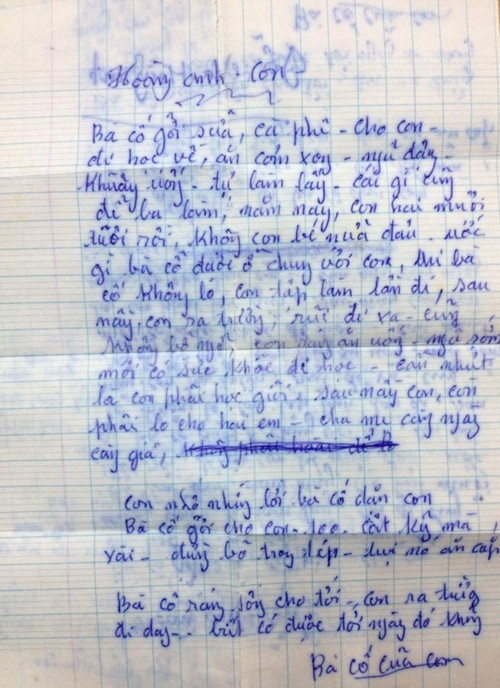 Hoàng Anh. Con -
Ba cố gởi sữa, cà phê - cho con -
đi học về, ăn cơm xong - ngủ dậy -
Khuấy uống - tự làm lấy - cái gì cũng
để ba làm, năm nay, con hai mươi
tuổi rồi, không con bé nữa đâu. ước
gì bà cố dưới ở chung với con, thì bà
cố không lo, con tập làm lần đi, sau
nầy con ra trường, rủi đi xa - cũng
không bỡ ngỡ, con ráng ăn uống - ngủ sớm
mới có sức khỏe đi học - cần nhứt
là con phải học giỏi. sau nầy con, còn
phải lo cho hai em - cha mẹ càng ngày
càng già,
con nhớ những lời bà cố dặn con
Bà cố gởi cho con. 100. cất kỹ mà
xài - đừng bỏ trong lép - tụi nó ăn cắp
Bà cố ráng sống cho tới - con ra trường
đi dạy - . biết có được tới ngày đó không
Bà cố của con